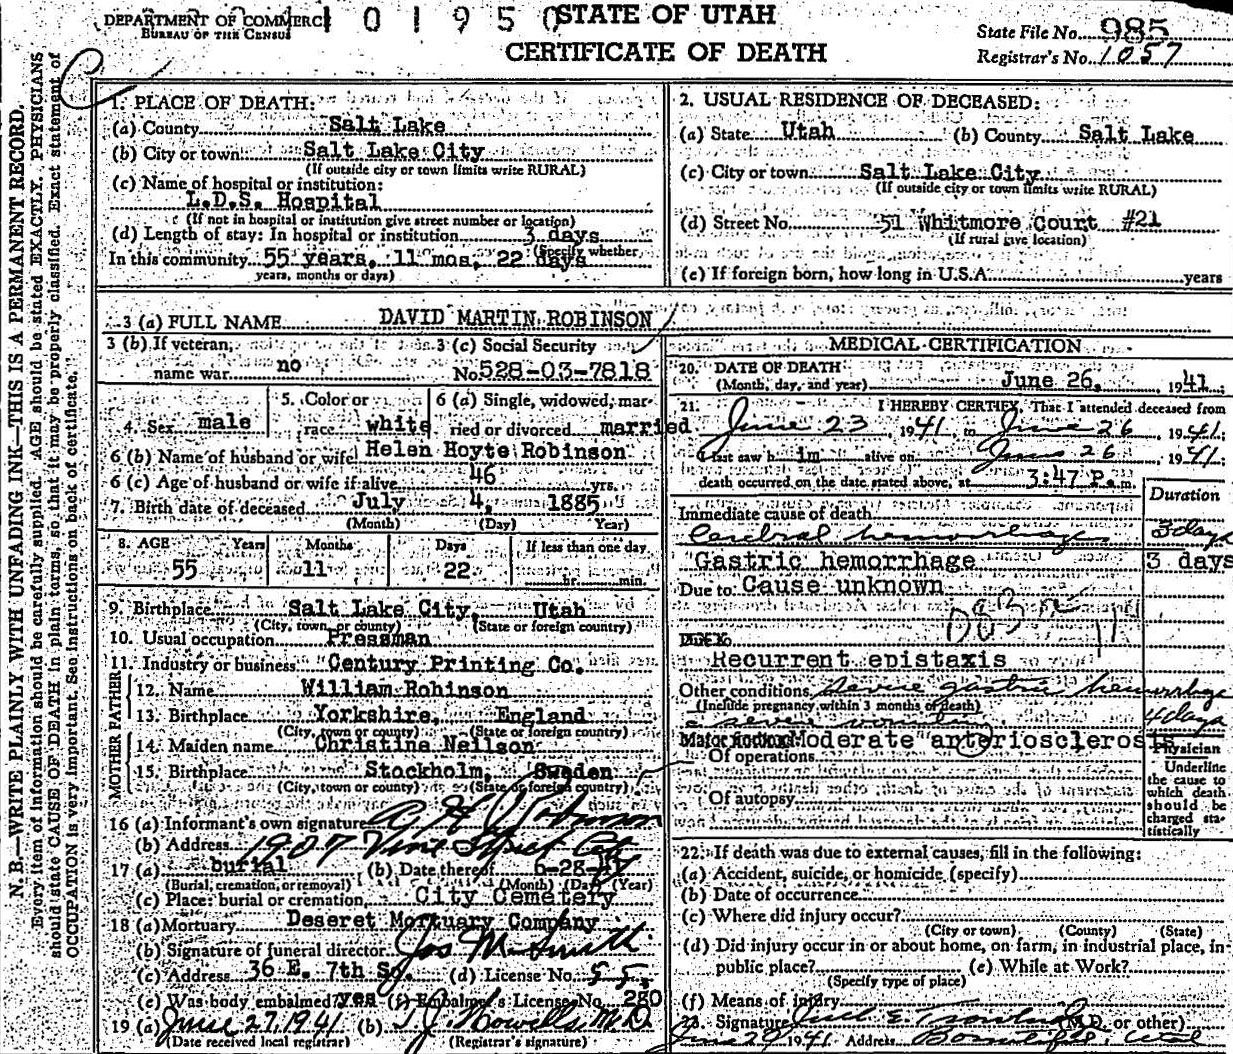 DEPARTMENT OF COMMERCE
BUREAU OF THE CENSUS
101950
STATE OF UTAH
CERTIFICATE OF DEATH
State File No. 985
Registrar's No. 1057
N. B.—WRITE PLAINLY WITH UNFADING INK—THIS IS A PERMANENT RECORD.
Every item of information should be carefully supplied. AGE should be stated EXACTLY. PHYSICIANS
should state CAUSE OF DEATH in plain terms, so that it may be properly classified. Exact statement of
OCCUPATION is very important. See instructions on back of certificate.
1. PLACE OF DEATH:
(a) County Salt Lake
(b) City or town Salt Lake City
(If outside city or town limits write RURAL)
(c) Name of hospital or institution:
L.D.S. Hospital
(If not in hospital or institution give street number or location)
(d) Length of stay: In hospital or institution 3 days
(Specify whether
In this community 55 years, 11 mos, 22 days
years, months or days)
2. USUAL RESIDENCE OF DECEASED:
(a) State Utah (b) County Salt Lake
(c) City or town Salt Lake City
(If outside city or town limits write RURAL)
(d) Street No. 51 Whitmore Court #21
(If rural give location)
(e) If foreign born, how long in U.S.A. years
3 (a) FULL NAME DAVID MARTIN ROBINSON
3 (b) If veteran, name war no
3 (c) Social Security No. 528-03-7818
4. Sex male
5. Color or race white
6 (a) Single, widowed, married or divorced married
6 (b) Name of husband or wife Helen Hoyte Robinson
6 (c) Age of husband or wife if alive 46 yrs.
7. Birth date of deceased July 4, 1885
(Month) (Day) Year)
8. AGE Years Months Days If less than one day
55 11 22 hr. min.
9. Birthplace Salt Lake City, Utah
(City, town, or county) (State or foreign country)
10. Usual occupation Pressman
11. Industry or business Century Printing Co.
FATHER
12. Name William Robinson
13. Birthplace Yorkshire, England
(City, town or county) (State or foreign country)
MOTHER
14. Maiden name Christine Neilson
15. Birthplace Stockholm, Sweden
(City, town or county) (State or foreign country)
16 (a) Informant's own signature Robinson
(b) Address 1907 Vine Street
17 (a) burial (b) Date thereof 6-28-
(Burial, cremation, or removal) (Month) (Day) (Year)
(c) Place: burial or cremation City Cemetery
18 (a) Mortuary Deseret Mortuary Company
(b) Signature of funeral director Jos M Smith
(c) Address 36 E. 7th So. (d) License No. 55
(e) Was body embalmed? yes (f) Embalmer's License No. 280
19 (a) June 27, 1941 (b) Howells, M.D.
(Date received local registrar) (Registrar's signature)
MEDICAL CERTIFICATION
20. DATE OF DEATH
(Month, day, and year) June 26, 1941
21. I HEREBY CERTIFY, That I attended deceased from
June 23, 1941, to June 26 1941;
I last saw h im alive on June 26 1941;
death occurred on the date stated above, at 3:47 P. m.
Duration
Immediate cause of death
Cerebral hemorrhage 3 days
Gastric hemorrhage 3 days
Due to Cause unknown
Recurrent epistaxis
Other conditions Severe gastric hemorrhage
(Include pregnancy within 3 months of death)
4 days
Moderate arteriosclerosis
Of operations
Of autopsy
Physician
Underline
the cause to
which death
should be
charged sta-
tistically
22. If death was due to external causes, fill in the following:
(a) Accident, suicide, or homicide (specify)
(b) Date of occurrence
(c) Where did injury occur?
(City or town) (County) (State)
(d) Did injury occur in or about home, on farm, in industrial place, in
public place? (e) While at Work?
(Specify type of place)
(f) Means of injury
23. Signature (M.D. or other)
1941 Address Bountiful, Utah